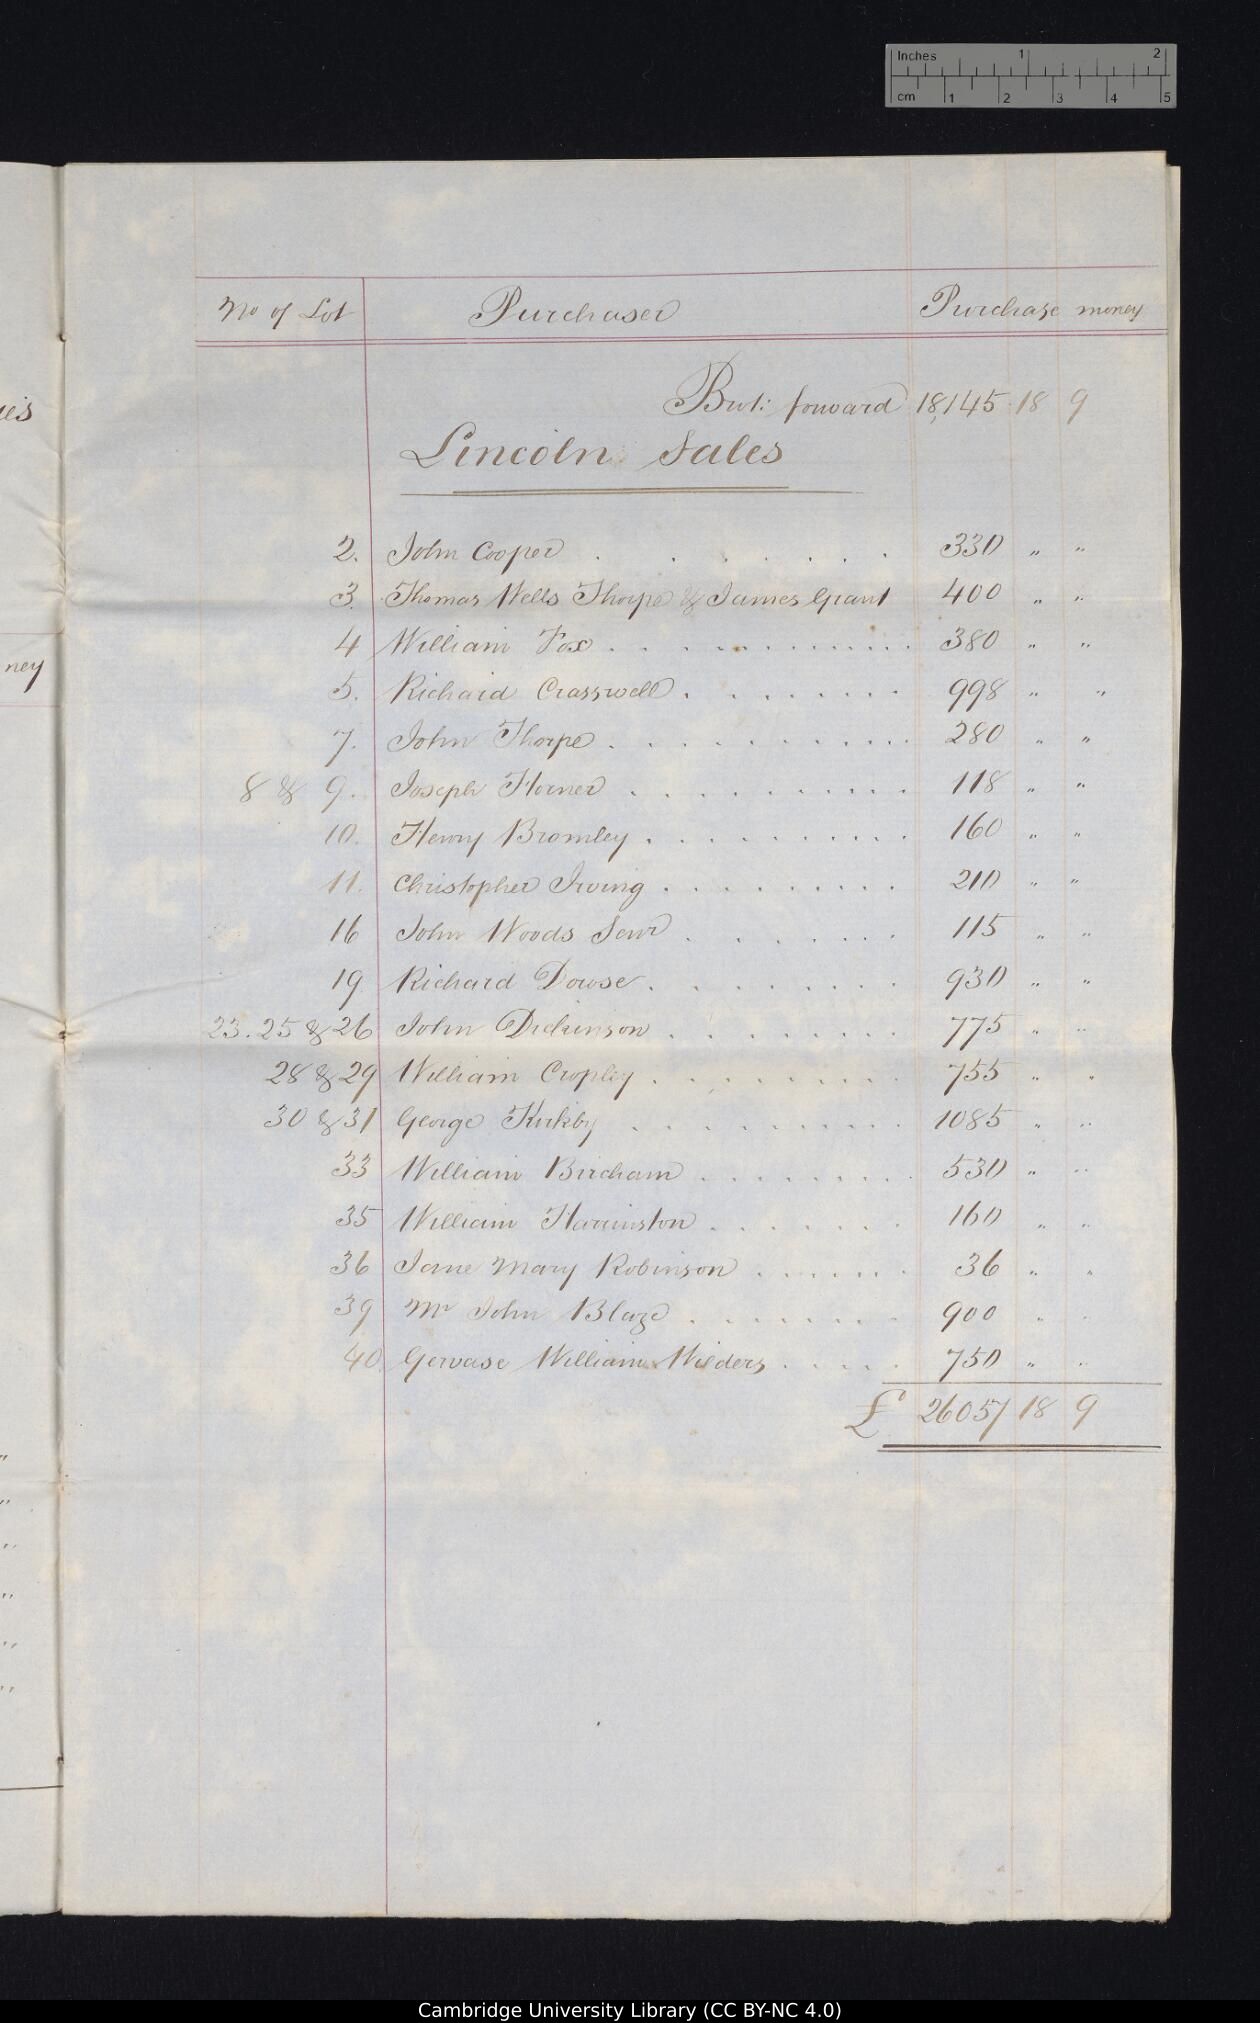 Inches 1 2
cm 1 2 3 4 5
No of Lot Purchaser Purchase money
Brot: forward 18,145 18 9
Lincoln Sales
2. John Cooper . . . . . . . 330 " "
3. Thomas Wells Thorpe & James Grant 400 " "
4 William Fox . . . . . . . . . . . 380 " "
5. Richard Crasswell . . . . . . . 998 " "
7. John Thorpe . . . . . . . . . . 280 " "
8 & 9. Joseph Horner . . . . . . . . . 118 " "
10. Henry Bromley . . . . . . . . . 160 " "
11. Christopher Irving . . . . . . . . 210 " "
16 John Woods Senr . . . . . . 115 " "
19 Richard Dowse . . . . . . . . 930 " "
23. 25 & 26 John Dickinson . . . . . . . 775 " "
28 & 29 William Cropley . . . . . . . . 755 " "
30 & 31 George Kirkby . . . . . . . . . 1085 " "
33 William Bircham . . . . . . . . 530 " "
35 William Harrinston . . . . . . 160 " "
36 Jane Mary Robinson . . . . . . 36 " "
39 Mr John Blaze . . . . . . . 900 " "
40 Gervase William Wilders . . . . . 750 " "
£ 26057 18 9
ney
Cambridge University Library (CC BY-NC 4.0)